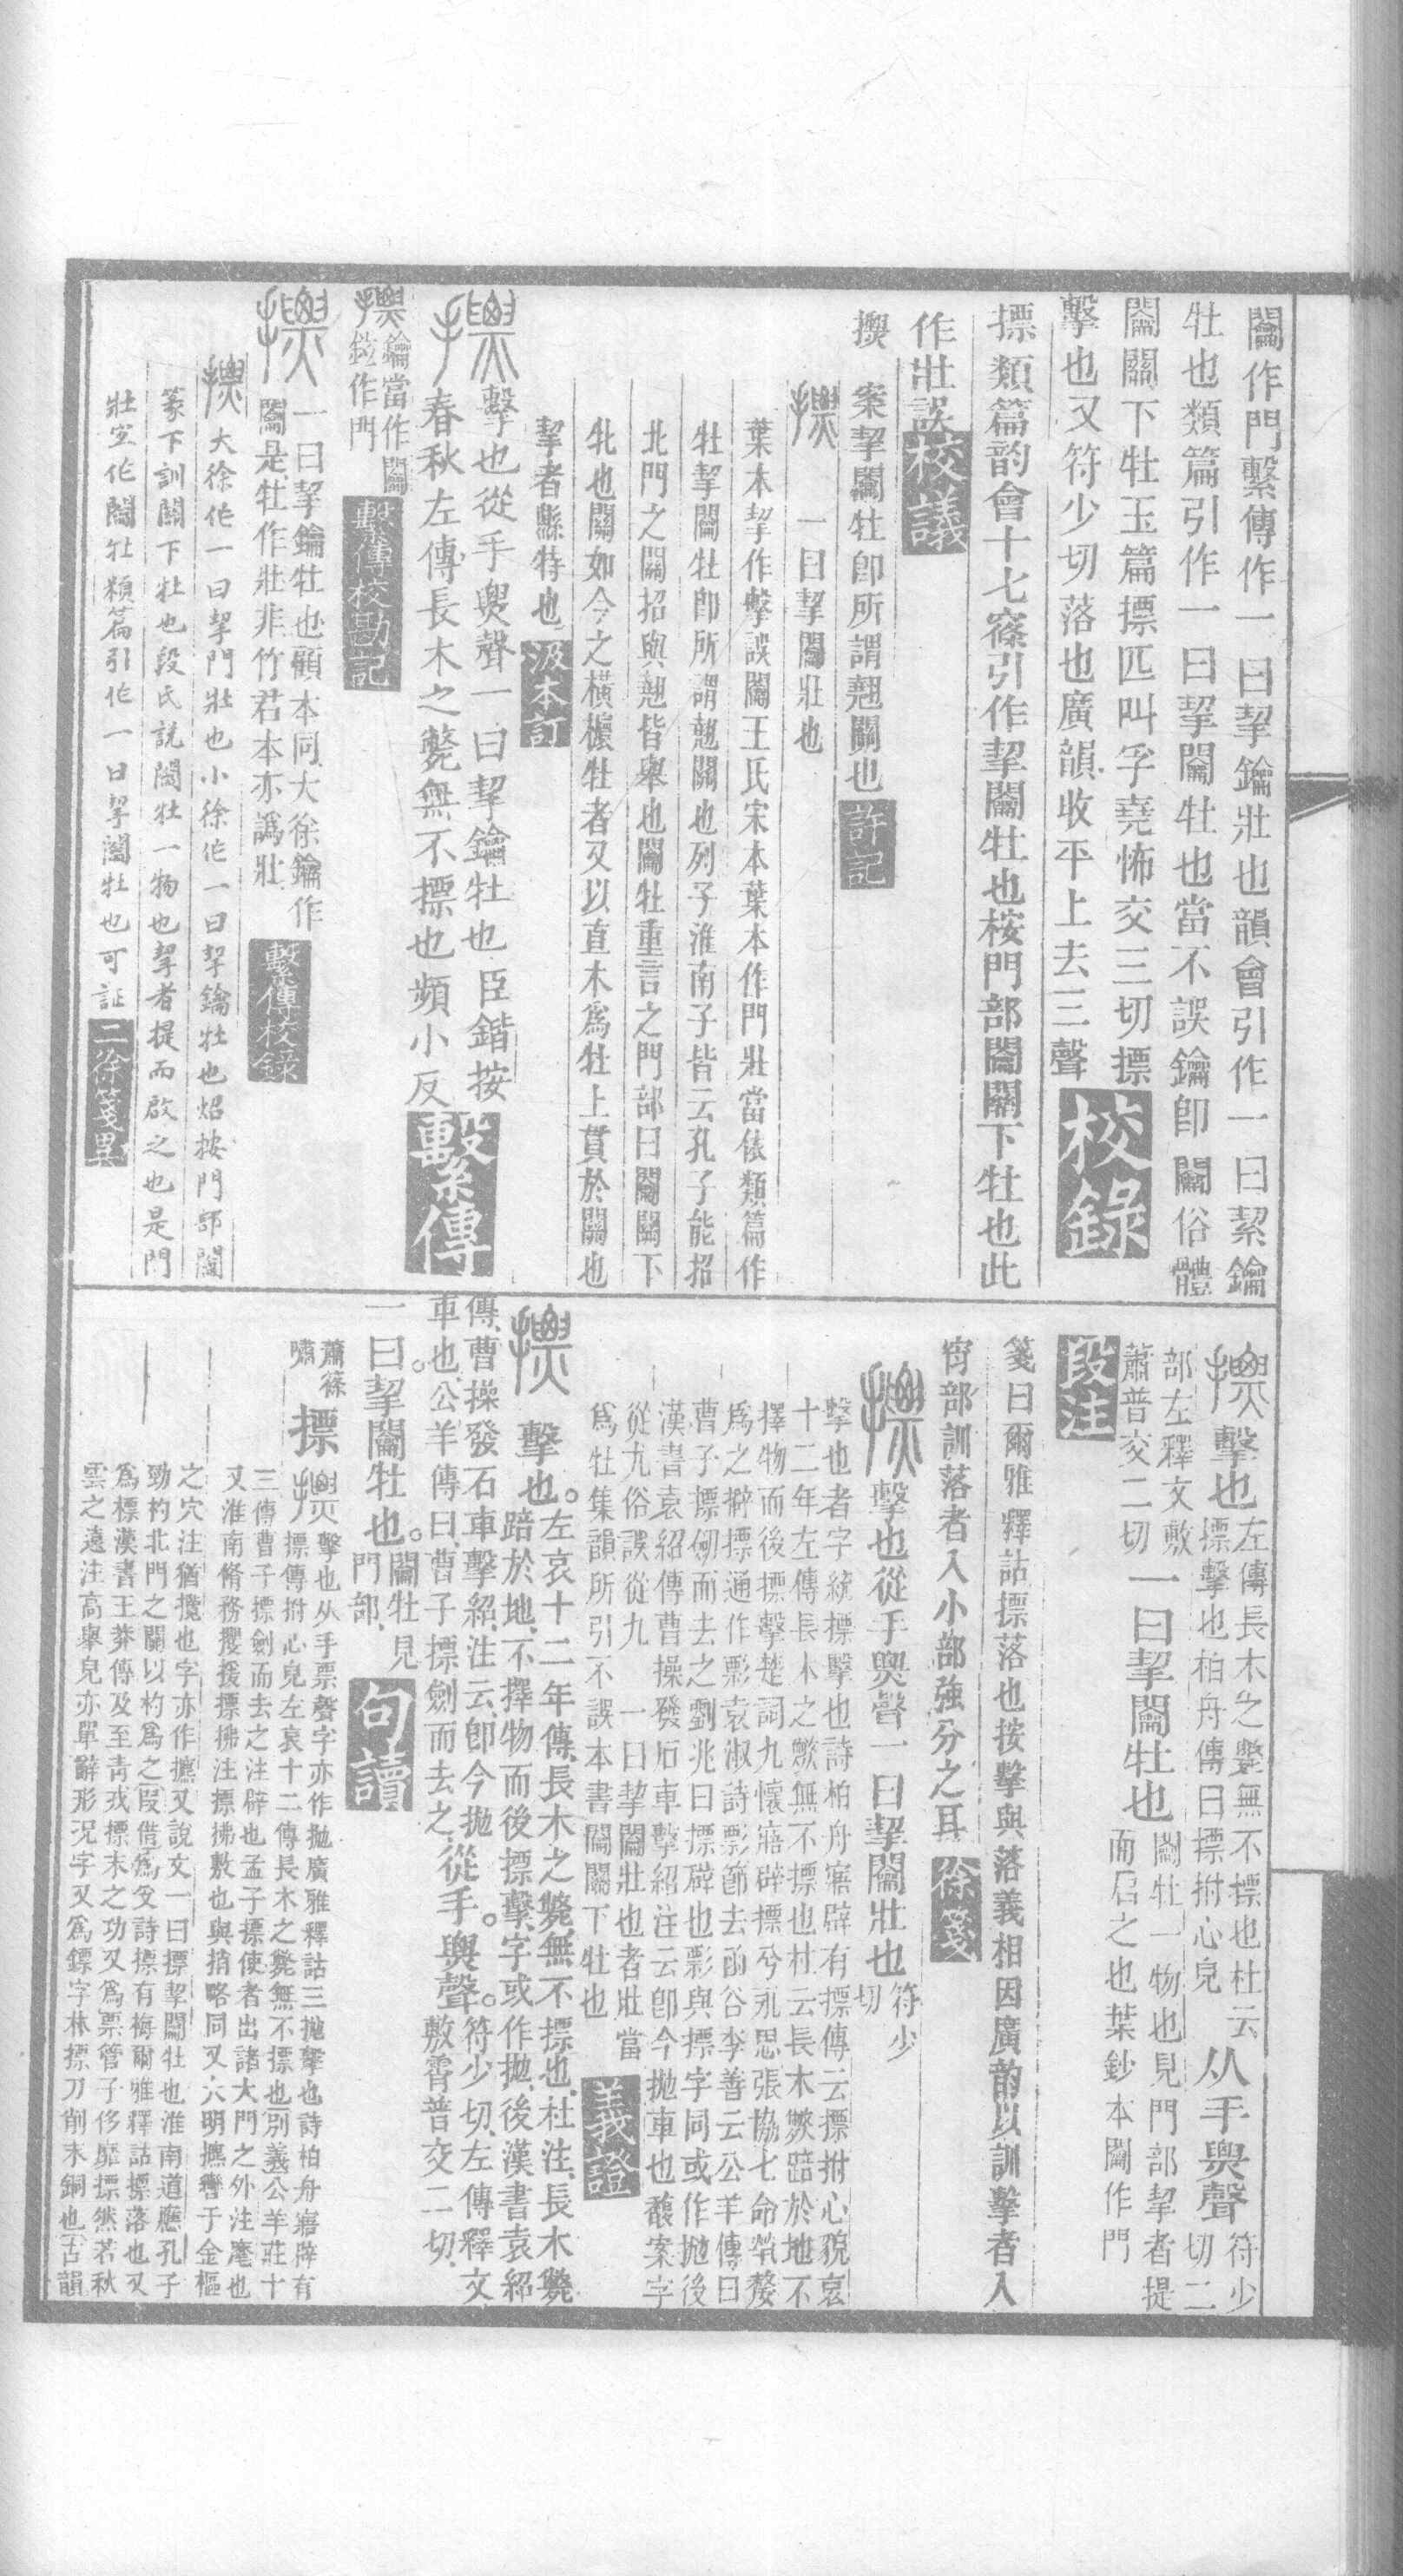 闔作門繫傳作一曰挈鑰壯也韻會引作一曰絜鑰
牡也類篇引作一曰挈闔牡也當不誤鑰卽闔俗體
闔關下牡玉篇摽匹叫孚堯怖交三切摽
擊也又符少切落也廣韻收平上去三聲
校錄
摽類篇韵會十七篠引作挈闔牡也桉門部闔關下牡也此
作壯誤
校議
案挈闔牡卽所謂翹關也
許記
一曰挈闔壯也
葉本挈作擊誤闔王氏宋本葉本作門壯當依類篇作
牡挈闔牡卽所謂翹關也列子淮南子皆云孔子能招
北門之關招與翹皆舉也闔牡重言之門部曰闔關下
牝也關如今之橫櫎牡者又以直木爲牡上貫於關也
挈者縣特也
汲本訂
擊也從手䙳聲一曰挈鑰牡也臣鍇按
春秋左傳長木之斃無不摽也頻小反
繫傳
鑰當作闔
鈙作門
繫傳校勘記
一曰挈鑰牡也顧本同大徐鑰作
闔是牡作壯非竹君本亦譌壯
繫傳校錄
大徐作一曰挈門壯也小徐作一曰挈鑰牡也炤按門部闔
篆下訓關下牡也段氏說闔牡一物也挈者提而啟之也是門
壯宐作闔牡類篇引作一曰挈闔牡也可証
二徐箋異
擊也
左傳長木之斃無不摽也杜云
摽擊也柏舟傳曰摽拊心皃
从手䙳聲
符少
切二
部左釋文敷
蕭普交二切
一曰挈闔牡也
闔牡一物也見門部挈者提
而启之也葉鈔本闔作門
段注
箋曰爾雅釋詁摽落也按擊與落義相因廣韵以訓擊者入
宵部訓落者入小部強分之耳
徐箋
擊也從手䙳聲一曰挈闔壯也
符少
切
擊也者字統摽擊也詩柏舟寤辟有摽傳云摽拊心貌哀
十二年左傳長木之斃無不摽也杜云長木斃踣於地不
擇物而後摽擊楚詞九懷寤辟摽兮永思張協七命煢嫠
爲之擗摽通作影袁淑詩影節去函谷李善云公羊傳曰
曹子摽劒而去之劉兆曰摽辟也影與摽字同或作拋後
漢書袁紹傳曹操發石車擊紹注云卽今拋車也馥案字
從九俗誤從九
一曰挈闔壯也者壯當
爲牡集韻所引不誤本書闔關下牡也
義證
擊也。左哀十二年傳、長木之斃、無不摽也、杜注、長木斃
踣於地、不擇物而後摽擊、字或作拋、後漢書袁紹
傳、曹操發石車擊紹、注云、卽今拋車也、公羊傳曰、曹子摽劍而去之、從手。䙳聲。
符少切、左傳釋文、
敷霄普交二切、
一曰。挈闔牡也。
闔牡見
門部、
句讀
蕭篠
嘯
摽
擊也从手票聲字亦作拋廣雅釋詁三拋擊也詩柏舟寤辟有
摽傳拊心皃左哀十二傳長木之斃無不摽也別義公羊莊十
三傳曹子摽劍而去之注辟也孟子摽使者出諸大門之外注麾也
又淮南脩務攫援摽拂注摽拂敷也與捎略同又六明攡轡于金樞
之穴注猶攬也字亦作攡又說文一曰摽挈闔牡也淮南道應孔子
勁杓北門之關以杓爲之叚借爲𠬪詩摽有梅爾雅釋詁摽落也又
爲標漢書王莽傳及至靑戎摽末之功又爲票管子侈靡摽然若秋
雲之遠注高舉皃亦單辭形況字又爲鏢字林摽刀削末銅也古韻